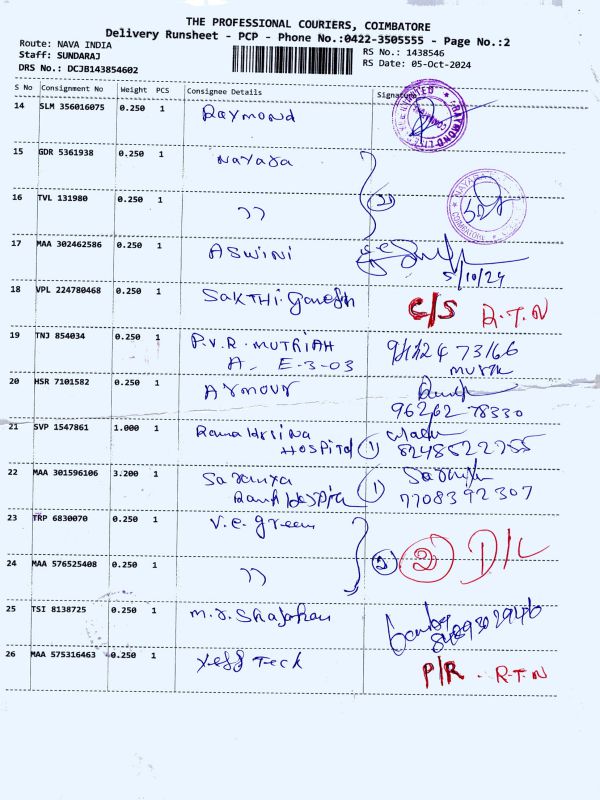 THE PROFESSIONAL COURIERS, COIMBATORE
Delivery Runsheet - PCP - Phone No.:0422-3505555 - Page No.:2
Route: NAVA INDIA
Staff: SUNDARAJ
DRS No.: DCJB143854602
RS No.: 1438546
RS Date: 05-Oct-2024
S No Consignment No Weight PCS Consignee Details Signature
14 SLM 356016075 0.250 1 Raymond
15 GDR 5361938 0.250 1 Nayara
16 TVL 131980 0.250 1 〃 2
17 MAA 302462586 0.250 1 ASWINI 5/10/24
18 VPL 224780468 0.250 1 SAKTHI Ganesh C/S R.T.N
19 TNJ 854034 0.250 1 P.V.R. MUTRIAH
A. E-3-03
20 HSR 7101582 0.250 1 Armour
96262 78330
21 SVP 1547861 1.000 1 HOSPITAL 1
22 MAA 301596106 3.200 1 1
7708392307
23 TRP 6830070 0.250 1 V.e. green 2 2 D/L
24 MAA 576525408 0.250 1 〃
25 TSI 8138725 0.250 1
26 MAA 575316463 0.250 1 Teck P/R. R.T.N